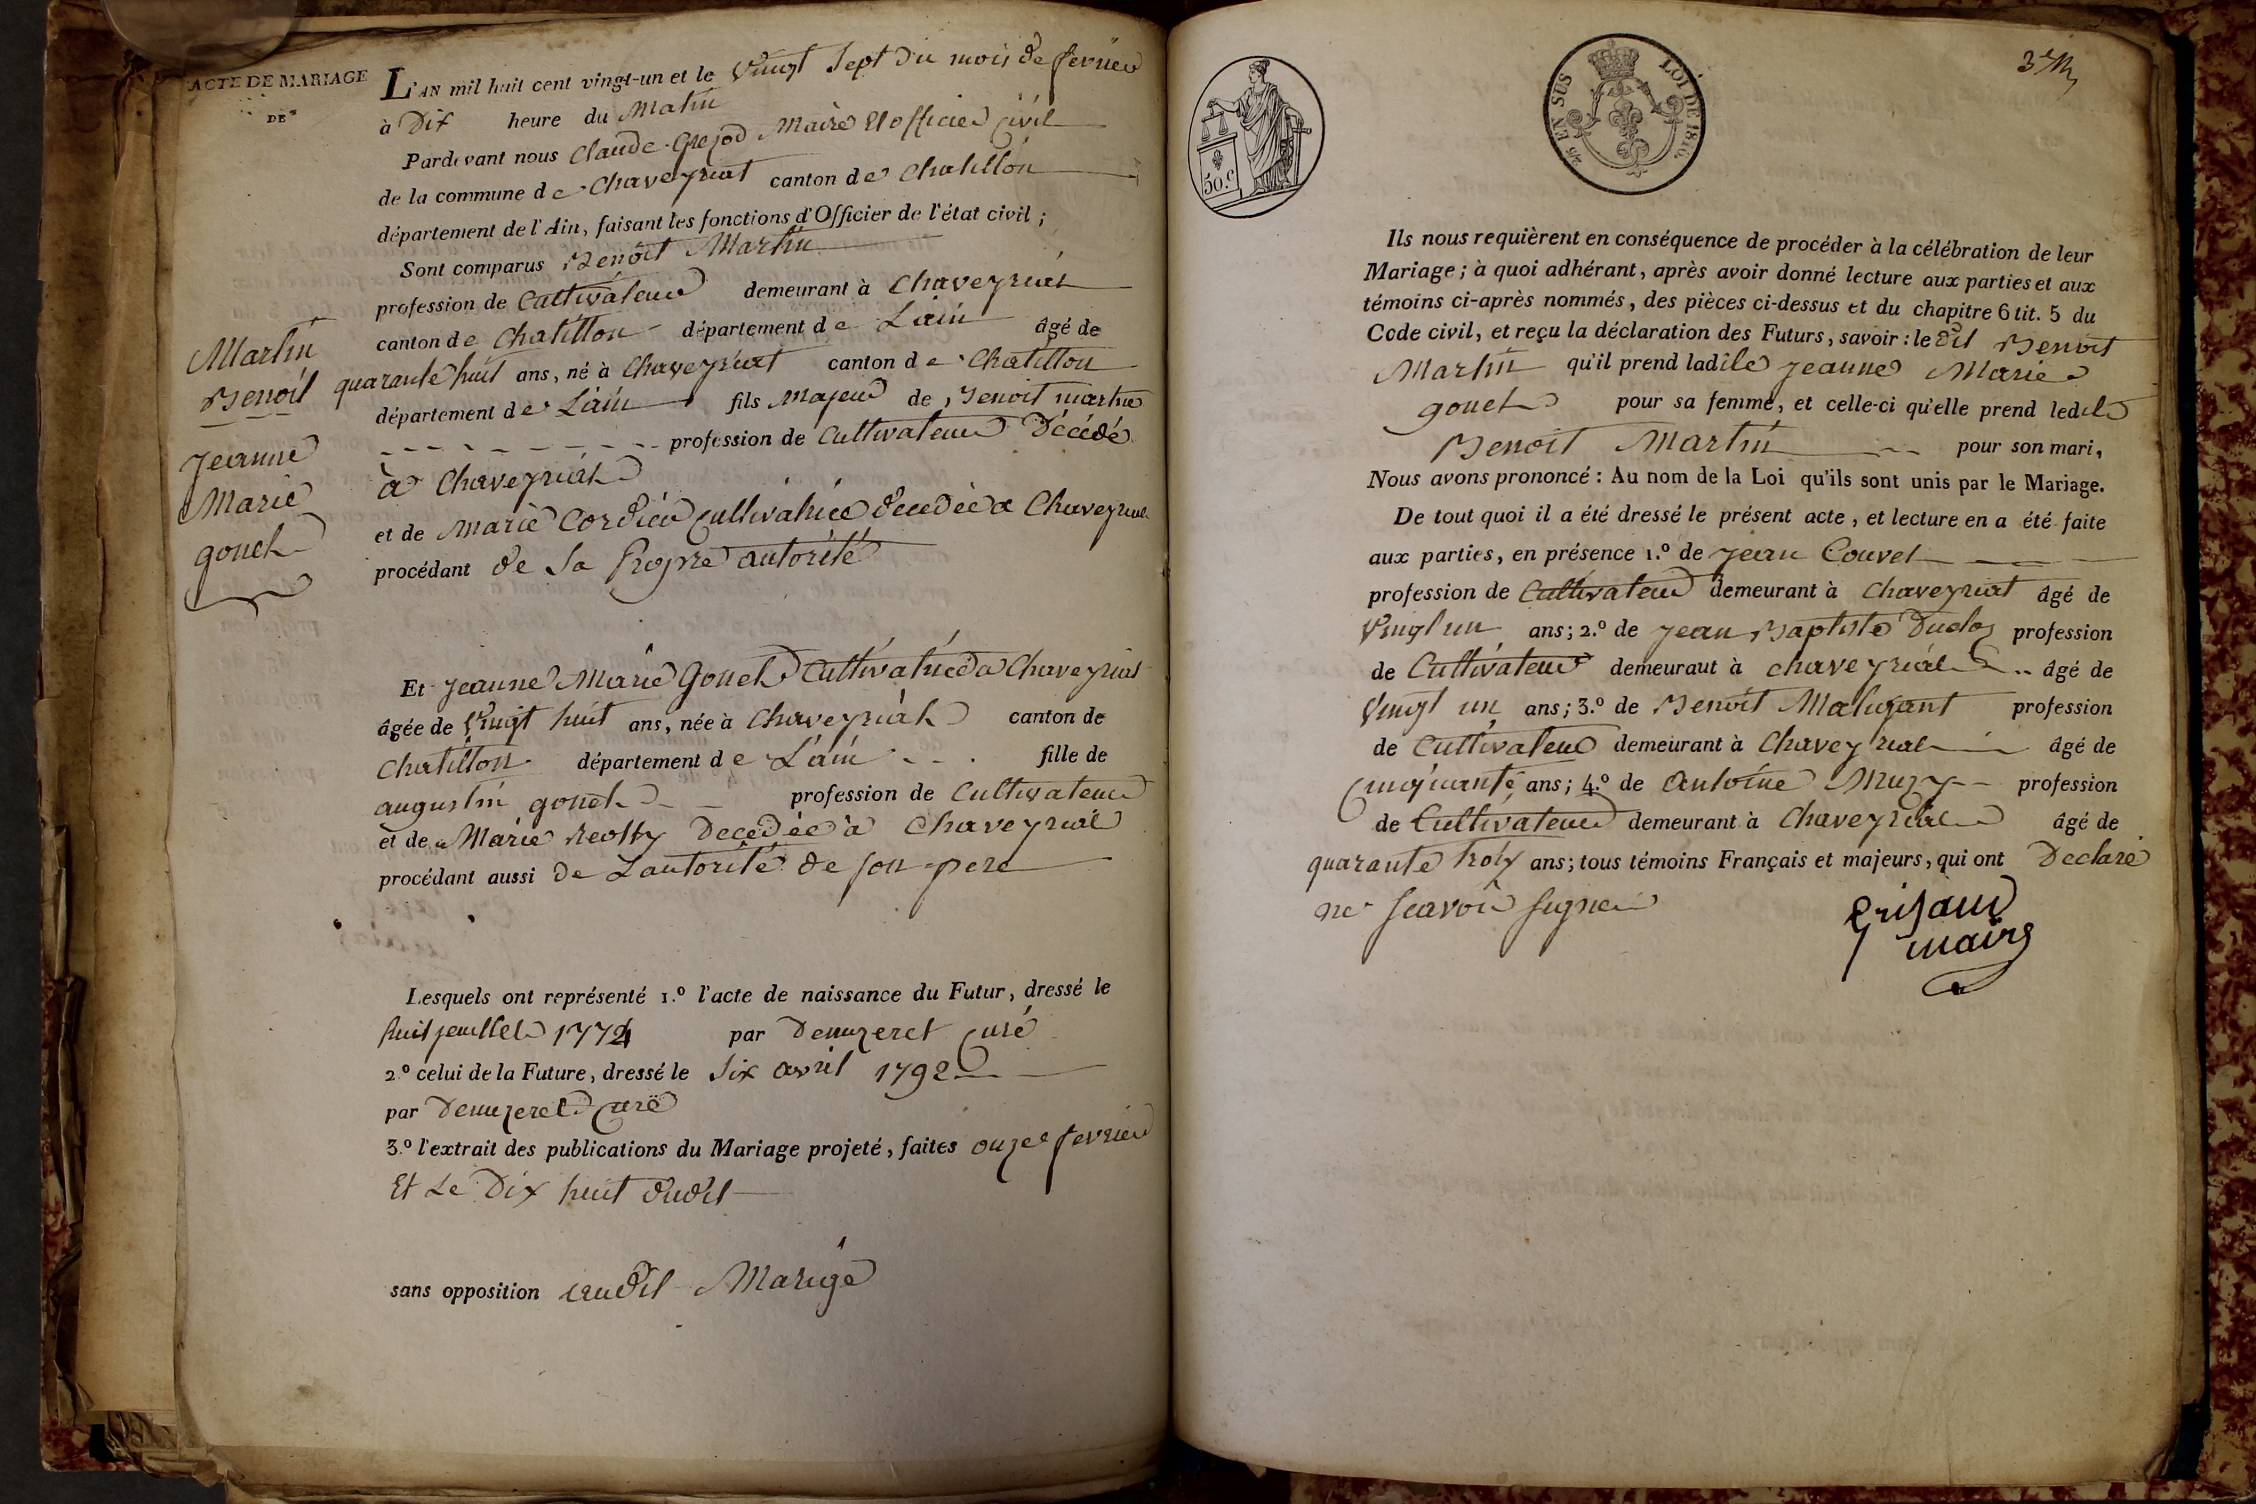 ACTE DE MARIAGE
DE
Martin
Benoit
Jeanne
Marie
gonet
L'AN mil huit cent vingt-un et le Vingt Sept Du mois de fevrier
à Dix heure du Matin
Pardevant nous Claude Maire Et officier Civil
de la commune de Chaveyriat canton de Chatillon
département de l'Ain, faisant les fonctions d'Officier de l'état civil ;
Sont comparus Benoit Martin
profession de Cultivateur demeurant à Chaveyriat
canton de Chatillon département de L'ain âgé de
quarante huit ans, né à Chaveyriat canton de Chatillon
département de L'ain fils majeur de Benoit martin
profession de Cultivateur Décédé
à Chaveyriat
et de Marie Cordier Cultivatrice decedée a Chaveyriat
procédant de Sa Propre autorité
Et Jeanne Marie Gonet Cultivatrice a Chaveyriat
âgée de Vingt huit ans, née à Chaveyriat canton de
Chatillon département de L'ain fille de
augustin gonet profession de Cultivateur
et de Marie Decedée à Chaveyriat
procédant aussi de L'autorité de son pere
Lesquels ont représenté 1.º l'acte de naissance du Futur, dressé le
huit jeuillet 1772 par Demuzeret Curé
2.º celui de la Future, dressé le Six avril 1792
par Demuzeret Curé
3.º l'extrait des publications du Mariage projeté, faites onze fevrier
Et Le Dix huit dudit
sans opposition audit Marige
50.c
EN SUS
LOI DE 1816.
Ils nous requièrent en conséquence de procéder à la célébration de leur
Mariage ; à quoi adhérant, après avoir donné lecture aux parties et aux
témoins ci-après nommés, des pièces ci-dessus et du chapitre 6 tit. 5 du
Code civil, et reçu la déclaration des Futurs, savoir : le dit Benoit
Martin qu'il prend ladite Jeanne Marie
gonet pour sa femme, et celle-ci qu'elle prend ledit
Benoit Martin pour son mari,
Nous avons prononcé : Au nom de la Loi qu'ils sont unis par le Mariage.
De tout quoi il a été dressé le présent acte, et lecture en a été faite
aux parties, en présence 1.º de Jean Couvet
profession de Cultivateur demeurant à Chaveyriat âgé de
Vingt un ans ; 2.º de Jean Baptiste Duclos profession
de Cultivateur demeuraut à chaveyriat âgé de
Vingt un ans ; 3.º de Benoit profession
de Cultivateur demeurant à Chaveyriat âgé de
Cinquante ans ; 4.º de antoine Muzy profession
de Cultivateur demeurant à Chaveyriat âgé de
quarante troix ans ; tous témoins Français et majeurs, qui ont Declaré
ne scavoir signer
maire